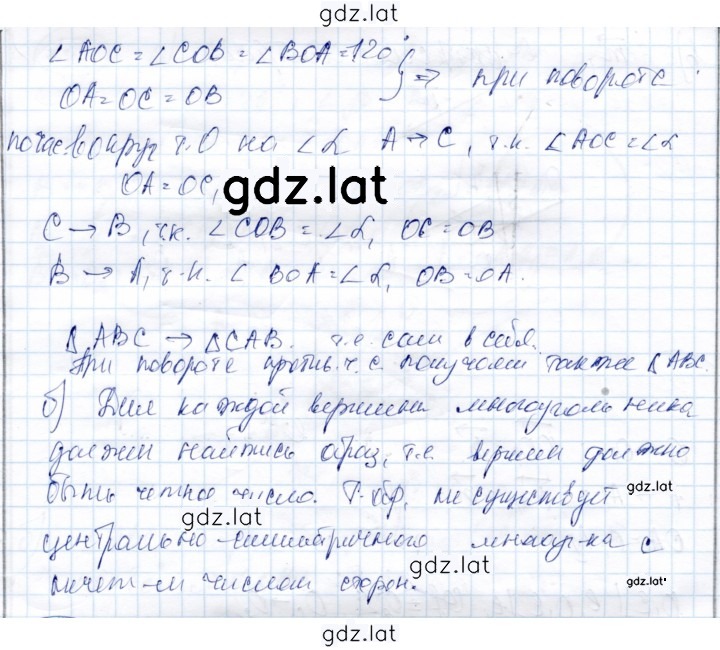 gdz.lat
∠AOC = ∠COB = ∠BOA = 120°
OA = OC = OB } => при повороте
по час. вокруг т.O на ∠α A → C, т.к. ∠AOC = ∠α
OA = OC,
gdz.lat
C → B, т.к. ∠COB = ∠α, OC = OB
B → A, т.к. ∠BOA = ∠α, OB = OA.
△ABC → △CAB. т.е. сам в себя.
При повороте против. ч.с. получаем также △ABC.
б) Для каждой вершины многоугольника
должен найтись образ, т.е. вершин должно
быть четное число. Т.обр, не существует
gdz.lat
gdz.lat
центрально-симметричного многоуг-ка с
gdz.lat
нечет-м числом сторон.
gdz.lat
gdz.lat